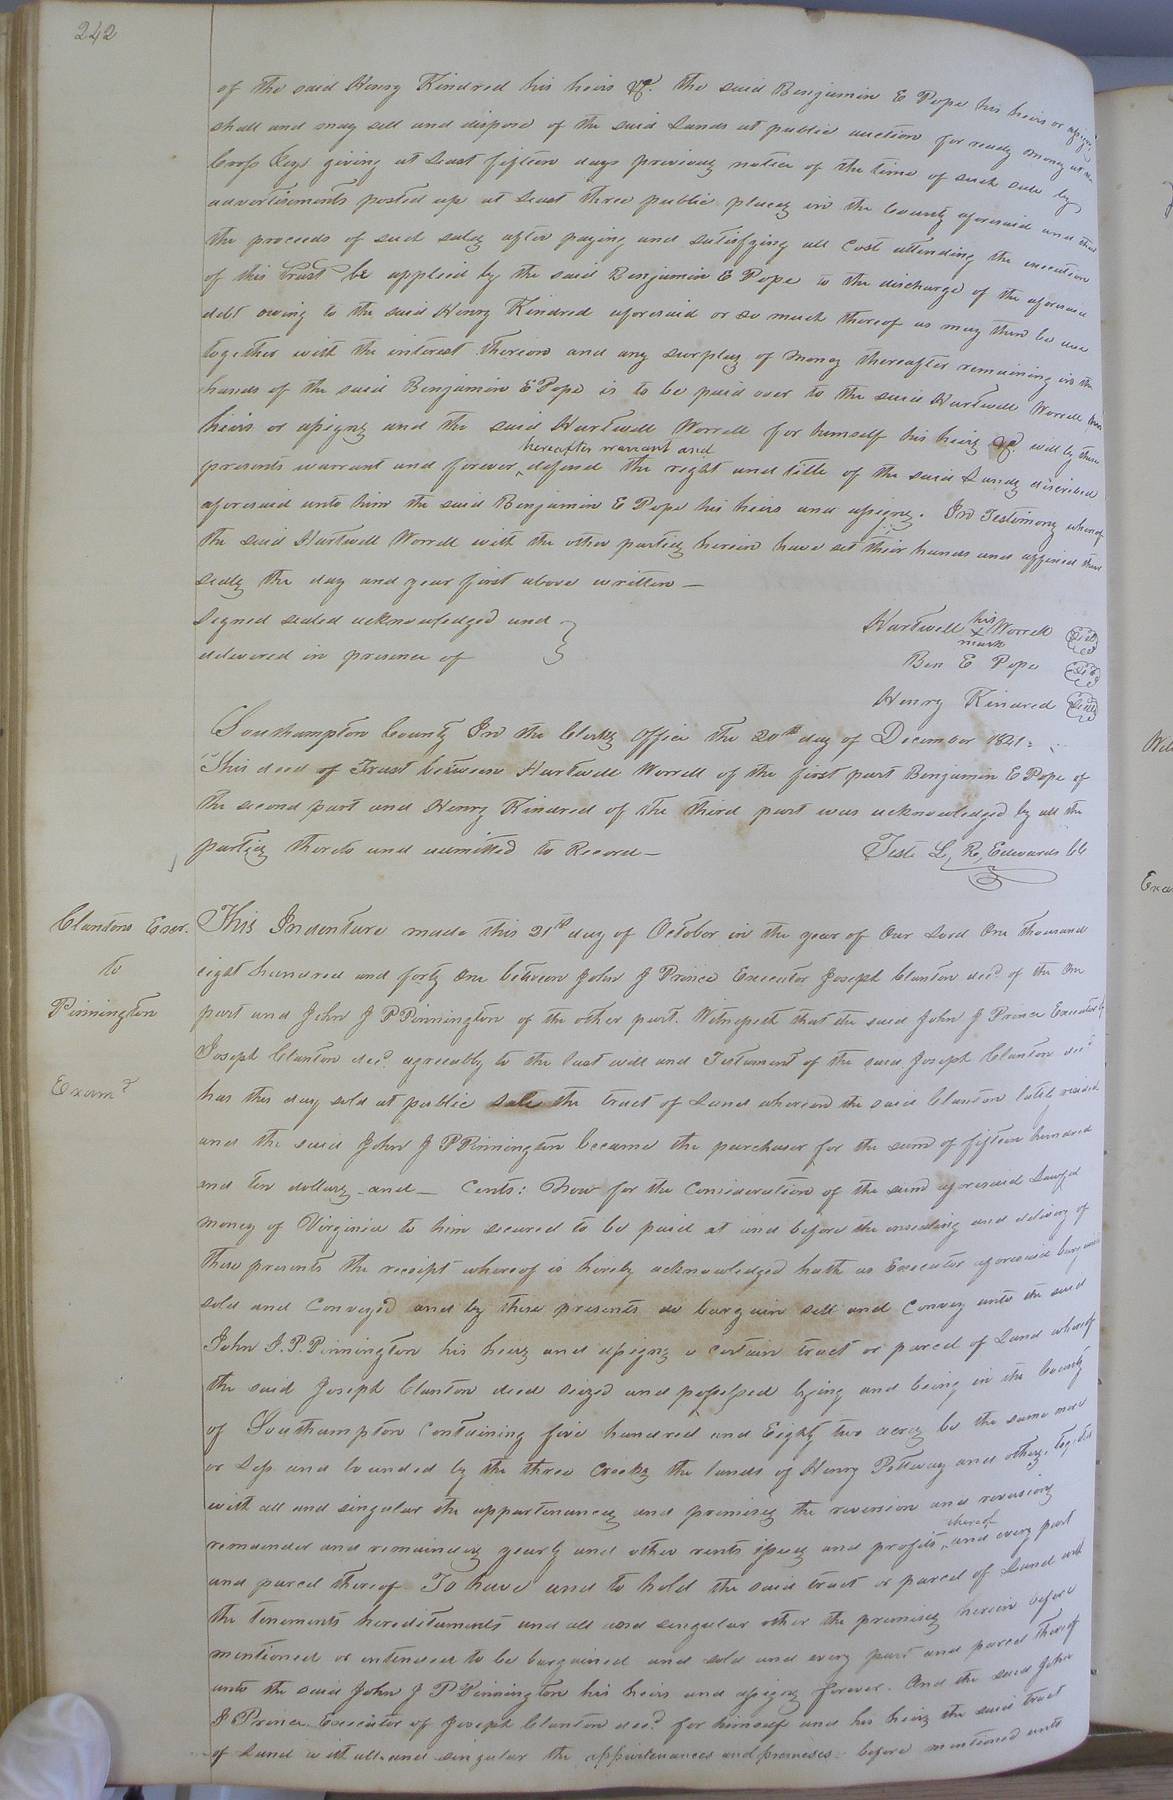 242
of the said Henry Kindred his heirs &c. the said Benjamin E Pope his heirs or assigns
shall and may sell and dispose of the said Lands at public auction for ready money at the
Cross Keys giving at Least fifteen days previously notice of the time of such sale by
advertisements posted up at Least three public places in the County aforesaid and that
the proceeds of such sales after paying and satisfying all Cost attending the execution
of this Trust be applied by the said Benjamin E Pope to the discharge of the aforesaid
debt owing to the said Henry Kindred aforesaid or so much thereof as may then be due
together with the interest thereon and any surplus of money thereafter remaining in the
hands of the said Benjamin E Pope is to be paid over to the said Hartwell Worrell his
heirs or assigns and the said Hartwell Worrell for himself his heirs &c. will by these
hereafter warrant and
presents warrant and forever defend the right and title of the said Lands discribed
aforesaid unto him the said Benjamin E Pope his heirs and assigns. In Testimony whereof
the said Hartwell Worrell with the other parties herein have set their hands and affixed their
seals the day and year first above written —
Signed sealed acknowledged and
delivered in presence of
Hartwell his x mark Worrell Seal
Ben E Pope Seal
Henry Kindred Seal
Southampton County In the Clerks Office the 20th day of December 1841:
This deed of Trust between Hartwell Worrell of the first part Benjamin E Pope of
the second part and Henry Kindred of the third part was acknowledged by all the
parties thereto and admitted to Record —
Teste L, R, Edwards Clk
Clantons Exor.
to
Pinnington
Examd
This Indenture made this 21st day of October in the year of Our Lord One thousand
eight hundred and forty One between John J Prince Executor Joseph Clanton decd. of the One
part and John J P Pinnington of the other part. Witnesseth that the said John J Prince Executor
Joseph Clanton decd. agreeably to the last will and Testament of the said Joseph Clanton decd
has this day sold at public sale the tract of Land whereon the said Clanton lately resided
and the said John J P Pinnington became the purchaser for the sum of fifteen hundred
and ten dollars and — Cents: Now for the Consideration of the sum aforesaid Lawful
money of Virginia to him secured to be paid at and before the ensealing and delivery of
these presents the receipt whereof is hereby acknowledged hath as Executor aforesaid bargained
sold and Conveyed and by these presents do bargain sell and Convey unto the said
John J. P. Pinnington his heirs and assigns a certain tract or parcel of Land whereof
the said Joseph Clanton died seized and possessed lying and being in the County
of Southampton Containing five hundred and Eighty two acres be the same more
or Less and bounded by the three Creeks the lands of Henry Pettway and others, together
with all and singular the appartenances and premises the reversion and revisions
thereof
remainded and remainders yearly and other rents issues and profits, and every part
and parcel thereof To have and to hold the said tract or parcel of Land with
the tenements hereditaments and all and singular other the premises herein before
mentioned or intended to be bargained and sold and every part and parcel thereof
unto the said John J P Pinnington his heirs and assigns forever. And the said John
J Prince Executor of Joseph Clanton decd. for himself and his heirs the said tract
of Land with all and singular the appurtenances and premises before mentioned unto